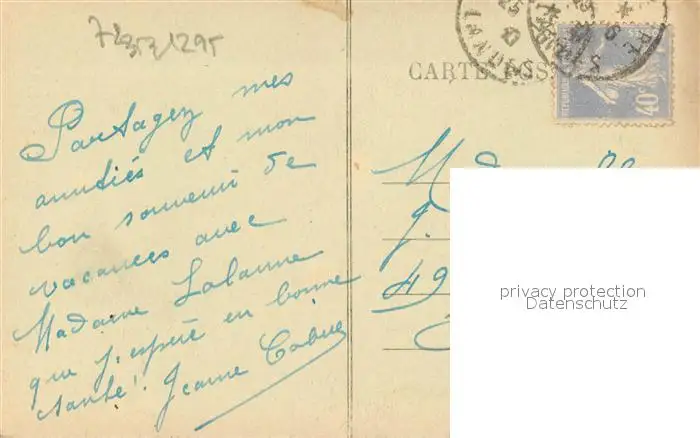 Partagez mes
amitiés et mon
bon souvenir de
vacances avec
Madame Lalanne
que j'espère en bonne
santé! Jeanne
CARTE POS
40c
M
J.
49
privacy protection
Datenschutz